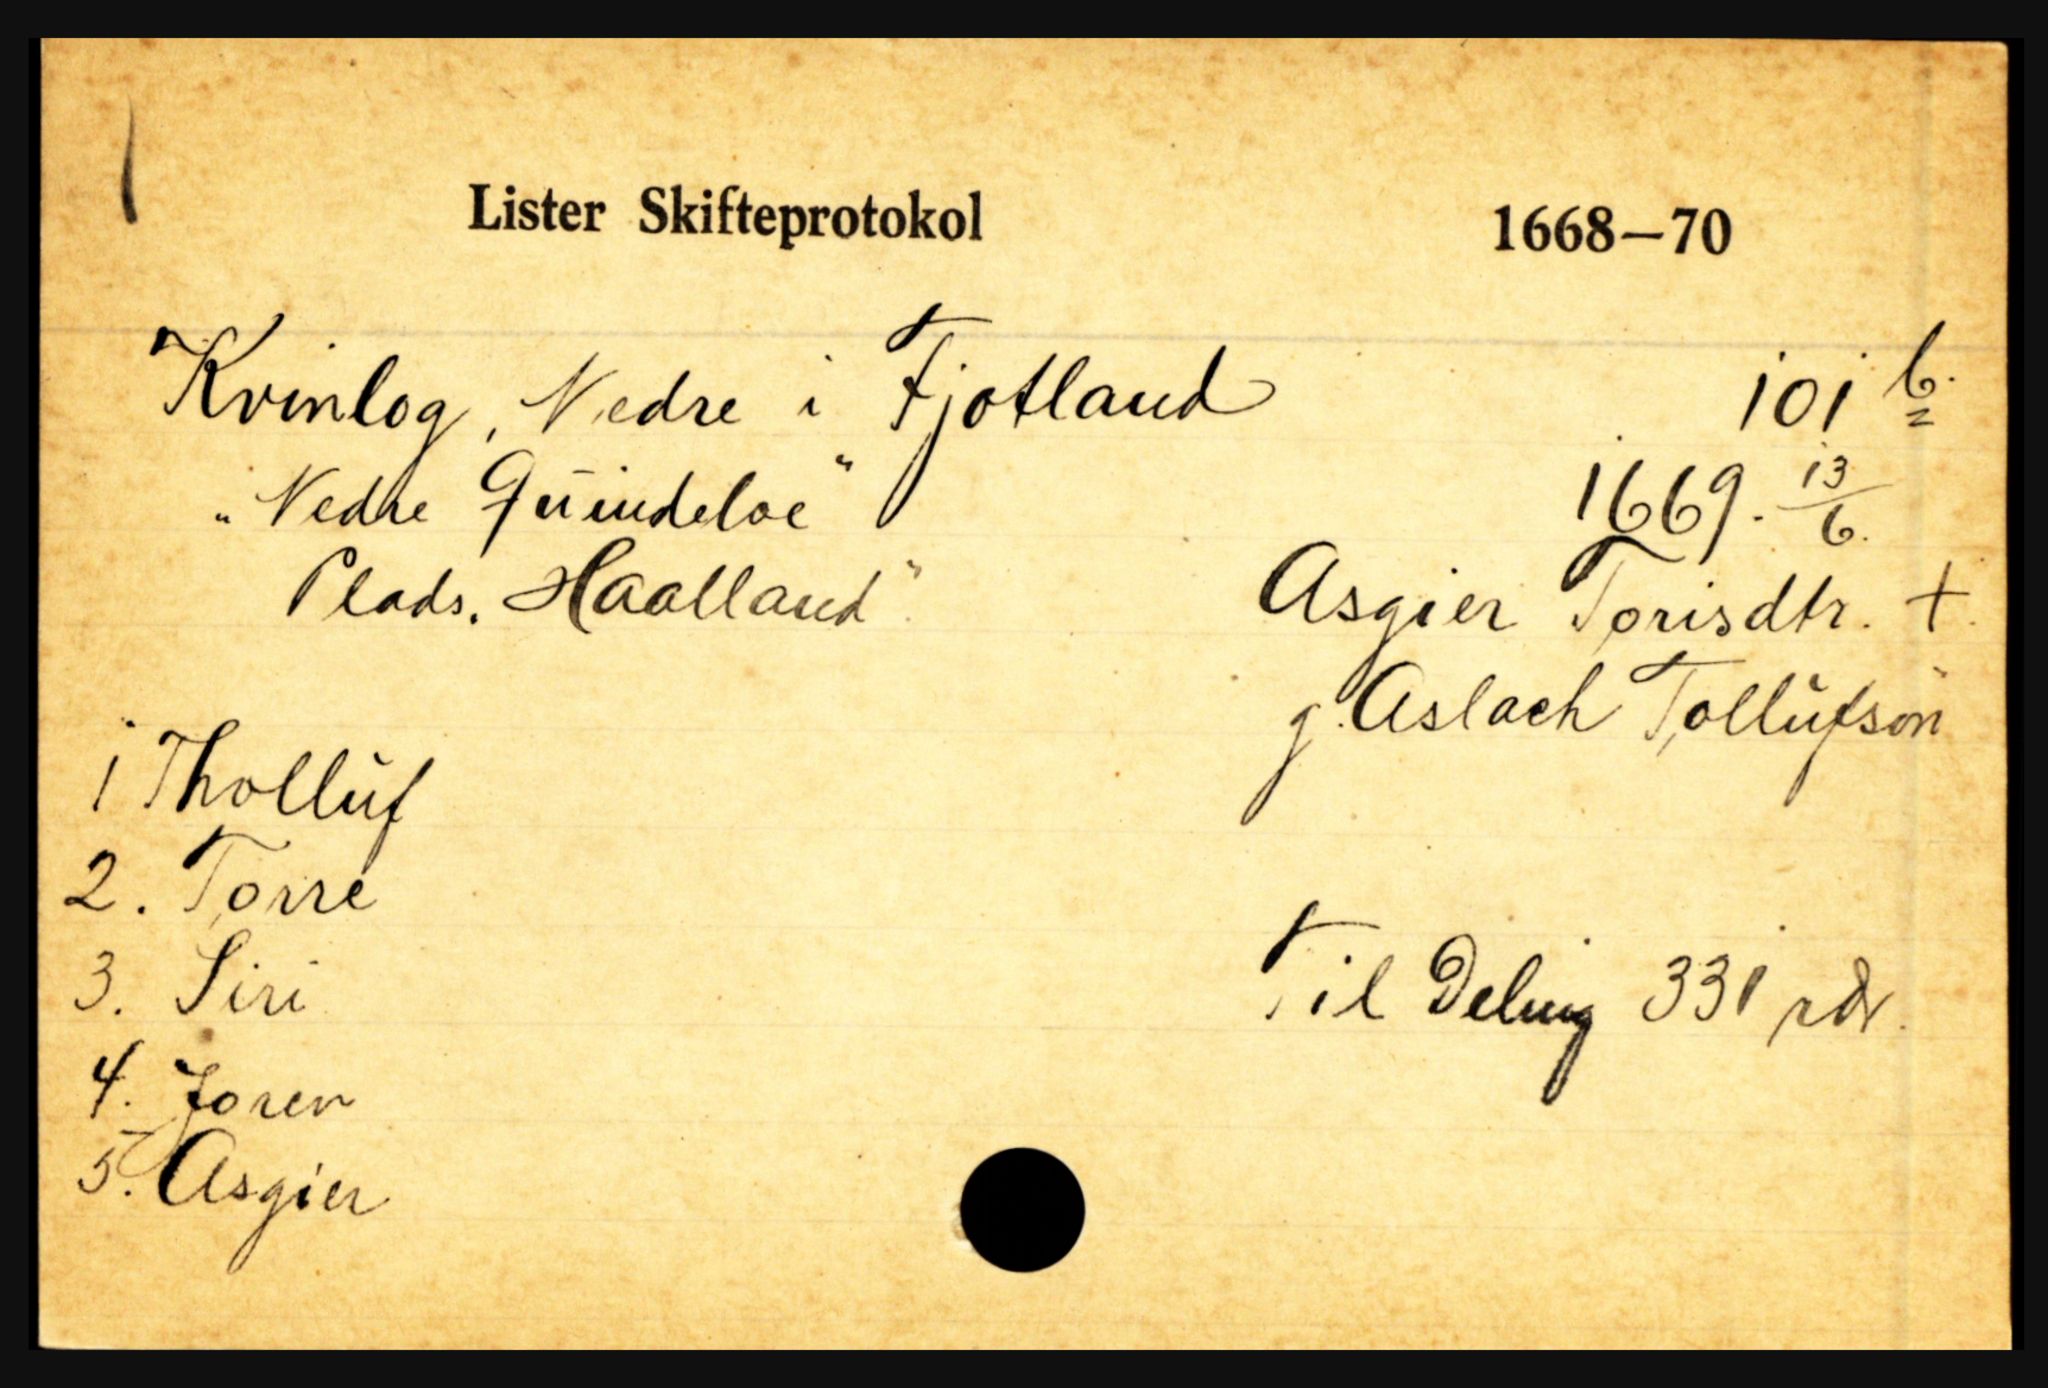 Lister Skifteprotokol 1668—70
Kvinlog, Nedre i Fjotland 101 b.
"Nedre Quindeloe" 1669. 13/6.
Plads. Haalland" Asgier Torisdtr. +.
g. Aslach Tollufsøn
1 Tholluf
2. Torre
3. Siri Til Deling 331 rdr.
4. Joren
5. Asgier